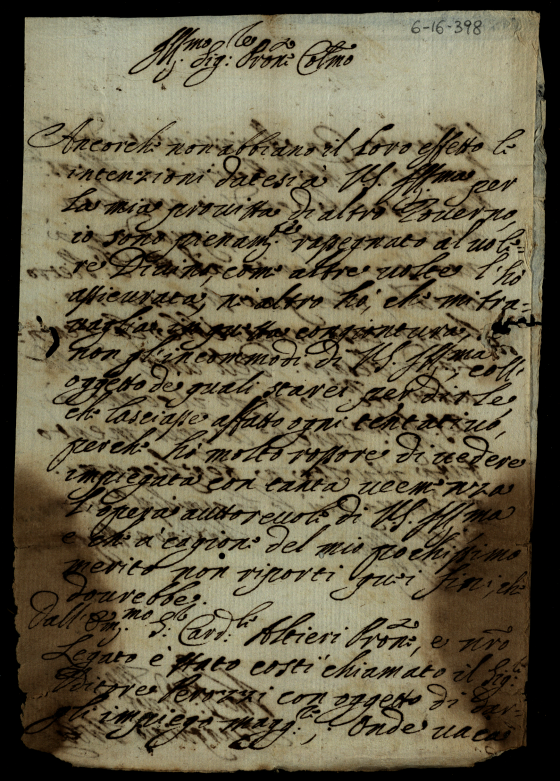 6-16-398
Ill.mo Sig:re Pron.e Colmo
Ancorche non abbiano il loro effetto le
intenzioni datesi à VS. Ill.ma per
la mia provista di altro Governo,
io sono pienam.te rasegnato al vole=
re Divino, come altre volte l'hò
assicurata, ne altro hò, che mi tra=
vaglia in questa congiontura, se
non gl'incommodi di VS. Ill.ma, coll'
oggetto de quali starei per dirle
che lasciasse affatto ogni tentativo,
perche hò molto rosore di vedere
impiegata con tanta veemenza
l'opera autorevole di VS. Ill.ma
e che à cagione del mio pochissimo
merito non riporti quei fini, che
dovrebbe.
Dall'Em.mo S: Card.le Altieri Prone, e nro
Legato è stato costì chiamato il Sig.
Uditore Perozzi con oggetto di dar=
gli impiego magg.re; Onde vacan